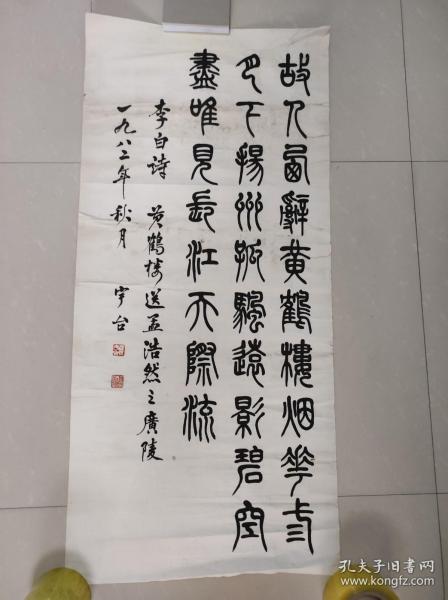 故人西辭黃鶴樓烟花三
月下揚州孤颿遠影碧空
盡唯見長江天際流
李白詩 黃鶴樓送孟浩然之廣陵
一九八二年秋月 宇台
孔夫子旧书网